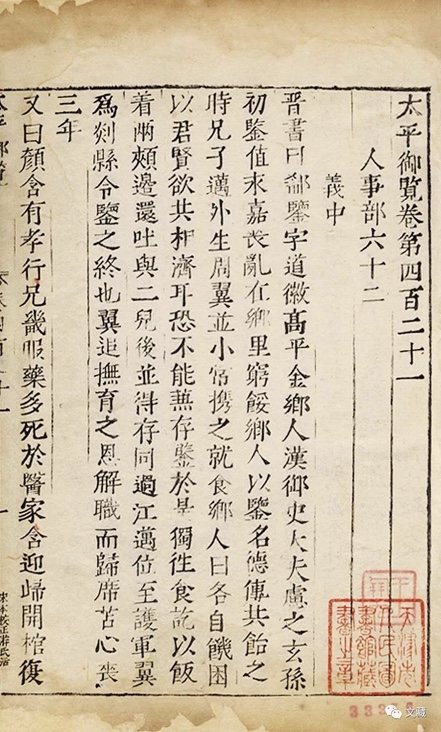 太平御覽卷第四百二十一
人事部六十二
義中
晋書曰郗鑒字道徽髙平金鄉人漢御史大夫慮之玄孫
初鑒值永嘉喪亂在鄉里窮餒鄉人以鑒名德傳共飴之
時兄子邁外生周翼並小常携之就食鄉人曰各自饑困
以君賢欲共相濟耳恐不能兼存鑒於是獨徃食訖以飯
着兩頰邊還吐與二兒後並得存同過江邁位至護軍翼
為剡縣令鑒之終也翼追撫育之恩解職而歸席苫心喪
三年
又曰顔含有孝行兄畿服藥多死於醫家含迎歸開棺復
文藏